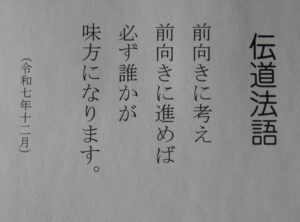 伝道法語
前向きに考え
前向きに進めば
必ず誰かが
味方になります。
（令和七年十二月）